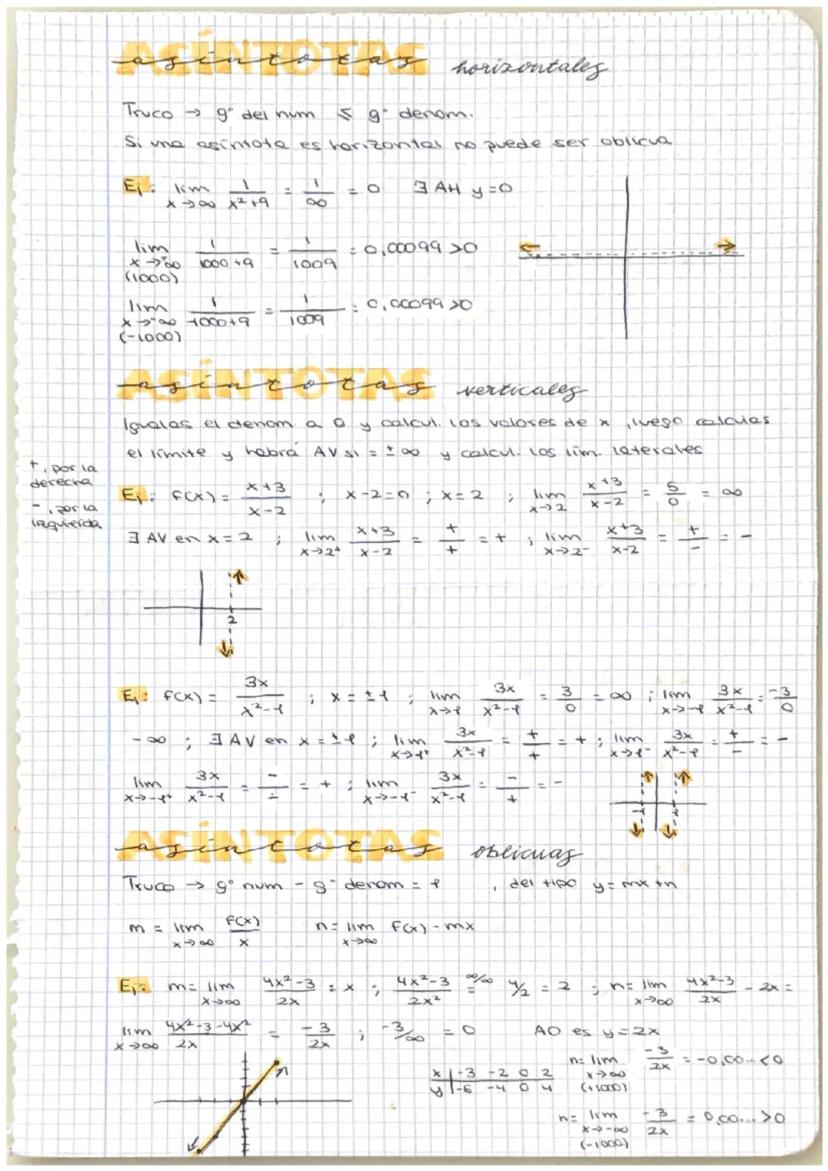 ASÍNTOTAS asíntotas horizontales
Truco → gº del num ≤ gº denom.
Si una asíntota es horizontal no puede ser oblicua
Ej: lim x→∞ 1/(x²+9) = 1/∞ = 0 ∃ AH y=0
lim x→+∞ (1000) 1/(1000+9) = 1/1009 = 0,00099 >0
lim x→-∞ (-1000) 1/(-1000+9) = 1/1009 = 0,00099 >0
ASÍNTOTAS asíntotas verticales
Igualas el denom a 0 y calcul. los valores de x, luego calculas
el límite y habrá AV si = ±∞ y calcul. los lim. laterales
+, por la derecha
-, por la izquierda
Ej: f(x) = (x+3)/(x-2) ; x-2=0 ; x=2 ; lim x→2 (x+3)/(x-2) = 5/0 = ∞
∃ AV en x=2 ; lim x→2⁺ (x+3)/(x-2) = +/+ = + ; lim x→2⁻ (x+3)/(x-2) = +/- = -
2
Ej: f(x) = 3x/(x²-1) ; x = ±1 ; lim x→1 3x/(x²-1) = 3/0 = ∞ ; lim x→-1 3x/(x²-1) = -3/0
-∞ ; ∃ AV en x = ±1 ; lim x→1⁺ 3x/(x²-1) = +/+ = + ; lim x→1⁻ 3x/(x²-1) = +/- = -
lim x→-1⁺ 3x/(x²-1) = -/- = + ; lim x→-1⁻ 3x/(x²-1) = -/+ = -
-1 1
ASÍNTOTAS asíntotas oblicuas
Truco → gº num - gº denom = 1 , del tipo y = mx+n
m = lim x→∞ f(x)/x n = lim x→∞ f(x) - mx
Ej: m = lim x→∞ (4x²-3)/2x : x ; (4x²-3)/2x² =^(∞/∞) 4/2 = 2 ; n = lim x→∞ (4x²-3)/2x - 2x =
lim x→∞ (4x²-3-4x²)/2x = -3/2x ; -3/∞ = 0 AO es y=2x
x | -3 -2 0 2
y | -6 -4 0 4
n = lim x→∞ (+1000) -3/2x = -0,00... <0
n = lim x→-∞ (-1000) -3/2x = 0,00... >0